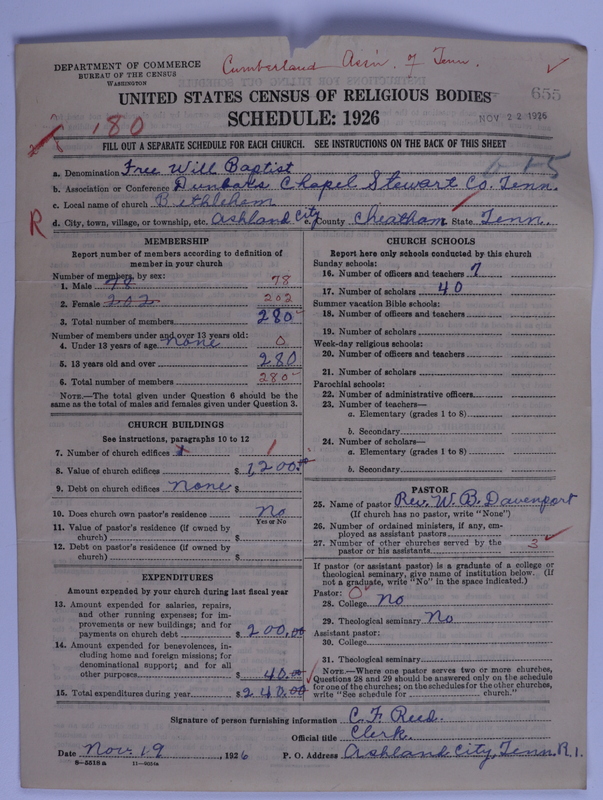 DEPARTMENT OF COMMERCE
BUREAU OF THE CENSUS
WASHINGTON
Cumberland Ass'n. of Tenn.
UNITED STATES CENSUS OF RELIGIOUS BODIES
655
SCHEDULE: 1926
NOV 22 1926
180
FILL OUT A SEPARATE SCHEDULE FOR EACH CHURCH. SEE INSTRUCTIONS ON THE BACK OF THIS SHEET
a. Denomination Free Will Baptist
b. Association or Conference Dunbars Chapel Stewart Co. Tenn.
c. Local name of church Bethlehem
R
d. City, town, village, or township, etc. Ashland City e. County Cheatham State Tenn.
MEMBERSHIP
Report number of members according to definition of
member in your church
Number of members, by sex:
1. Male 78 78
2. Female 202 202
3. Total number of members 280
Number of members under and over 13 years old:
4. Under 13 years of age none 0
5. 13 years old and over 280
6. Total number of members 280
NOTE.—The total given under Question 6 should be the
same as the total of males and females given under Question 3.
CHURCH BUILDINGS
See instructions, paragraphs 10 to 12
7. Number of church edifices 1 1
8. Value of church edifices $ 1,200.00
9. Debt on church edifices none $
10. Does church own pastor's residence No
Yes or No
11. Value of pastor's residence (if owned by
church) $
12. Debt on pastor's residence (if owned by
church) $
EXPENDITURES
Amount expended by your church during last fiscal year
13. Amount expended for salaries, repairs,
and other running expenses; for im-
provements or new buildings; and for
payments on church debt $ 200.00
14. Amount expended for benevolences, in-
cluding home and foreign missions; for
denominational support; and for all
other purposes $ 40.00
15. Total expenditures during year $ 240.00
CHURCH SCHOOLS
Report here only schools conducted by this church
Sunday schools:
16. Number of officers and teachers 7
17. Number of scholars 40
Summer vacation Bible schools:
18. Number of officers and teachers
19. Number of scholars
Week-day religious schools:
20. Number of officers and teachers
21. Number of scholars
Parochial schools:
22. Number of administrative officers
23. Number of teachers—
a. Elementary (grades 1 to 8)
b. Secondary
24. Number of scholars—
a. Elementary (grades 1 to 8)
b. Secondary
PASTOR
25. Name of pastor Rev. W. B. Davenport
(If church has no pastor, write "None")
26. Number of ordained ministers, if any, em-
ployed as assistant pastors
27. Number of other churches served by the
pastor or his assistants 3
If pastor (or assistant pastor) is a graduate of a college or
theological seminary, give name of institution below. (If
not a graduate, write "No" in the space indicated.)
Pastor: 0
28. College No
29. Theological seminary No
Assistant pastor:
30. College
31. Theological seminary
NOTE.—Where one pastor serves two or more churches,
Questions 28 and 29 should be answered only on the schedule
for one of the churches; on the schedules for the other churches,
write "See schedule for church."
Signature of person furnishing information C. F. Reed.
Official title Clerk.
Date Nov. 19, 1926 P. O. Address Ashland City, Tenn. R. 1.
8—5518a 11—9084a